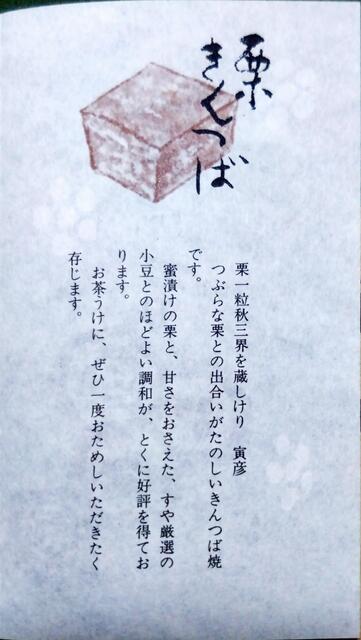 栗
きんつば
栗一粒秋三界を蔵しけり　寅彦
つぶらな栗との出合いがたのしいきんつば焼
です。
蜜漬けの栗と、甘さをおさえた、すや厳選の
小豆とのほどよい調和が、とくに好評を得てお
ります。
お茶うけに、ぜひ一度おためしいただきたく
存じます。